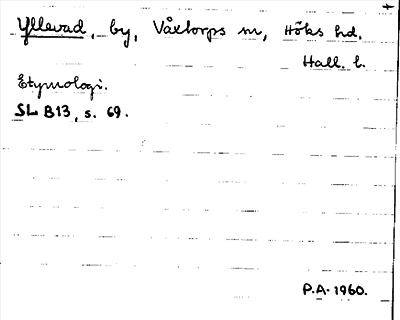 Yllevad, by, Våxtorps sn, Höks hd,
Hall. l.
Etymologi.
SL B13, s. 69.
P.A. 1960.